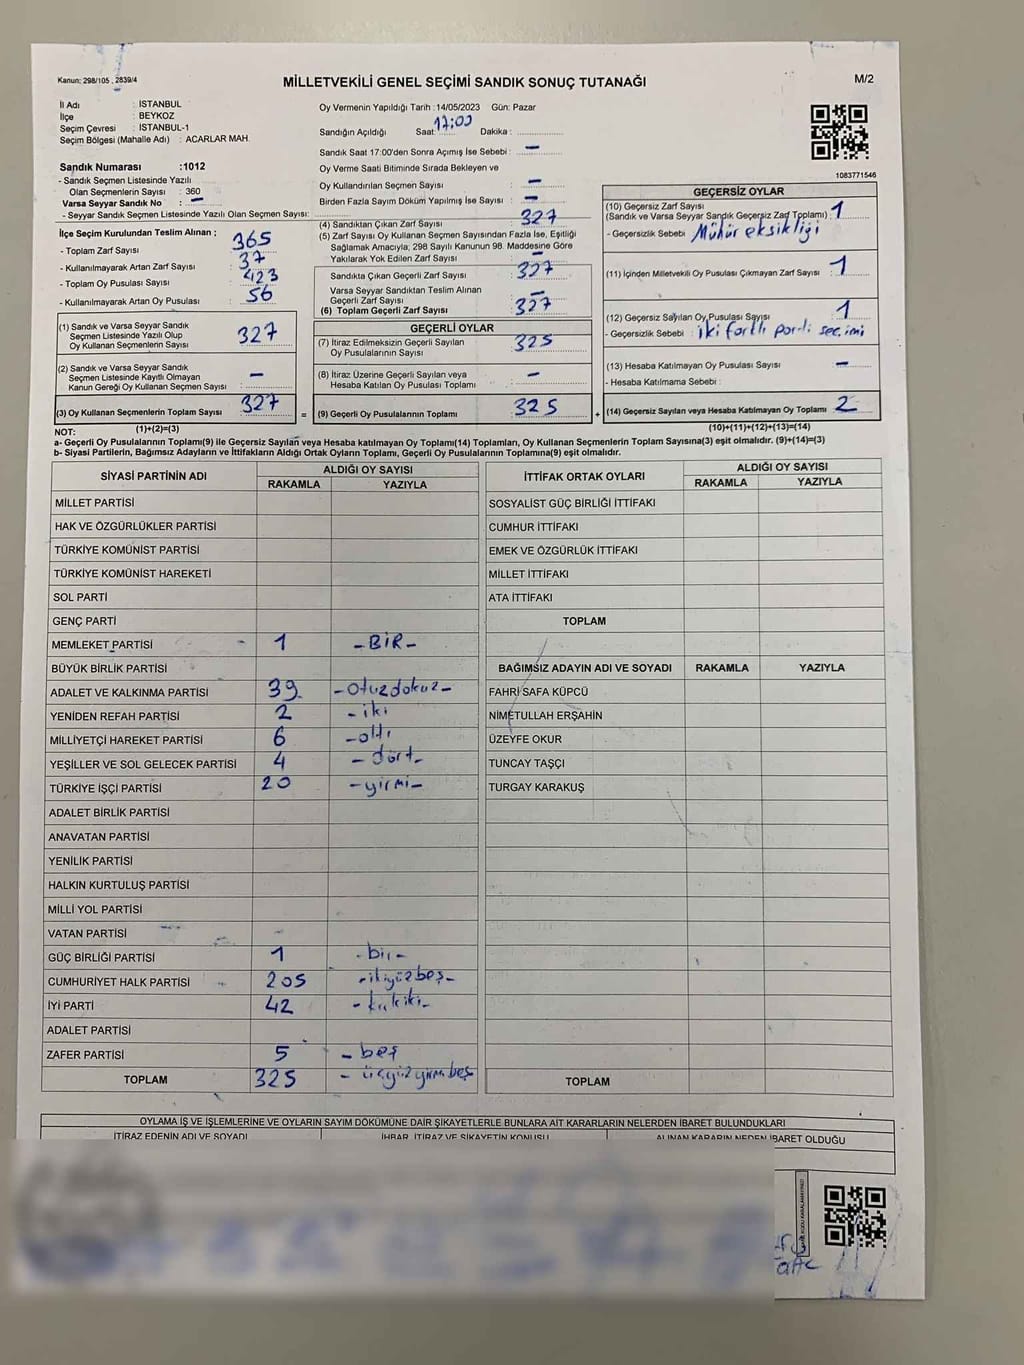 Kanun: 298/105 , 2839/4
MİLLETVEKİLİ GENEL SEÇİMİ SANDIK SONUÇ TUTANAĞI
M/2
İl Adı : İSTANBUL
İlçe : BEYKOZ
Seçim Çevresi : İSTANBUL-1
Seçim Bölgesi (Mahalle Adı) : ACARLAR MAH.
Sandık Numarası :1012
- Sandık Seçmen Listesinde Yazılı
Olan Seçmenlerin Sayısı : 360
Varsa Seyyar Sandık No : –
- Seyyar Sandık Seçmen Listesinde Yazılı Olan Seçmen Sayısı:
İlçe Seçim Kurulundan Teslim Alınan ;
- Toplam Zarf Sayısı : 365
- Kullanılmayarak Artan Zarf Sayısı : 37
- Toplam Oy Pusulası Sayısı : 423
- Kullanılmayarak Artan Oy Pusulası : 56
(1) Sandık ve Varsa Seyyar Sandık
Seçmen Listesinde Yazılı Olup
Oy Kullanan Seçmenlerin Sayısı : 327
(2) Sandık ve Varsa Seyyar Sandık
Seçmen Listesinde Kayıtlı Olmayan
Kanun Gereği Oy Kullanan Seçmen Sayısı : –
(3) Oy Kullanan Seçmenlerin Toplam Sayısı : 327
(1)+(2)=(3)
Oy Vermenin Yapıldığı Tarih :14/05/2023 Gün: Pazar
Sandığın Açıldığı Saat: 17:00 Dakika :
Sandık Saat 17:00'den Sonra Açımış İse Sebebi : –
Oy Verme Saati Bitiminde Sırada Bekleyen ve
Oy Kullandırılan Seçmen Sayısı : –
Birden Fazla Sayım Döküm Yapılmış İse Sayısı : –
(4) Sandıktan Çıkan Zarf Sayısı : 327
(5) Zarf Sayısı Oy Kullanan Seçmen Sayısından Fazla İse, Eşitliği
Sağlamak Amacıyla; 298 Sayılı Kanunun 98. Maddesine Göre
Yakılarak Yok Edilen Zarf Sayısı : –
Sandıkta Çıkan Geçerli Zarf Sayısı : 327
Varsa Seyyar Sandıktan Teslim Alınan
Geçerli Zarf Sayısı : –
(6) Toplam Geçerli Zarf Sayısı : 327
GEÇERLİ OYLAR
(7) İtiraz Edilmeksizin Geçerli Sayılan
Oy Pusulalarının Sayısı : 325
(8) İtiraz Üzerine Geçerli Sayılan veya
Hesaba Katılan Oy Pusulası Toplamı : –
= (9) Geçerli Oy Pusulalarının Toplamı : 325 +
1083771546
GEÇERSİZ OYLAR
(10) Geçersiz Zarf Sayısı
(Sandık ve Varsa Seyyar Sandık Geçersiz Zarf Toplamı) : 1
- Geçersizlik Sebebi : Mühür eksikliği
(11) İçinden Milletvekili Oy Pusulası Çıkmayan Zarf Sayısı : 1
(12) Geçersiz Sayılan Oy Pusulası Sayısı : 1
- Geçersizlik Sebebi : iki farklı parti seçimi
(13) Hesaba Katılmayan Oy Pusulası Sayısı : –
- Hesaba Katılmama Sebebi :
(14) Geçersiz Sayılan veya Hesaba Katılmayan Oy Toplamı : 2
(10)+(11)+(12)+(13)=(14)
NOT:
a- Geçerli Oy Pusulalarının Toplamı(9) ile Geçersiz Sayılan veya Hesaba katılmayan Oy Toplamı(14) Toplamları, Oy Kullanan Seçmenlerin Toplam Sayısına(3) eşit olmalıdır. (9)+(14)=(3)
b- Siyasi Partilerin, Bağımsız Adayların ve İttifakların Aldığı Ortak Oyların Toplamı, Geçerli Oy Pusulalarının Toplamına(9) eşit olmalıdır.
SİYASİ PARTİNİN ADI ALDIĞI OY SAYISI
RAKAMLA YAZIYLA
MİLLET PARTİSİ
HAK VE ÖZGÜRLÜKLER PARTİSİ
TÜRKİYE KOMÜNİST PARTİSİ
TÜRKİYE KOMÜNİST HAREKETİ
SOL PARTİ
GENÇ PARTİ
MEMLEKET PARTİSİ 1 -BİR-
BÜYÜK BİRLİK PARTİSİ
ADALET VE KALKINMA PARTİSİ 39 -otuzdokuz-
YENİDEN REFAH PARTİSİ 2 -iki
MİLLİYETÇİ HAREKET PARTİSİ 6 -altı
YEŞİLLER VE SOL GELECEK PARTİSİ 4 -dört-
TÜRKİYE İŞÇİ PARTİSİ 20 -yirmi-
ADALET BİRLİK PARTİSİ
ANAVATAN PARTİSİ
YENİLİK PARTİSİ
HALKIN KURTULUŞ PARTİSİ
MİLLİ YOL PARTİSİ
VATAN PARTİSİ -
GÜÇ BİRLİĞİ PARTİSİ 1 -bir-
CUMHURİYET HALK PARTİSİ 205 -ikiyüzbeş-
İYİ PARTİ 42 -kırkiki-
ADALET PARTİSİ
ZAFER PARTİSİ 5 -beş
TOPLAM 325 -üçyüzyirmibeş
İTTİFAK ORTAK OYLARI ALDIĞI OY SAYISI
RAKAMLA YAZIYLA
SOSYALİST GÜÇ BİRLİĞİ İTTİFAKI
CUMHUR İTTİFAKI
EMEK VE ÖZGÜRLÜK İTTİFAKI
MİLLET İTTİFAKI
ATA İTTİFAKI
TOPLAM
BAĞIMSIZ ADAYIN ADI VE SOYADI RAKAMLA YAZIYLA
FAHRİ SAFA KÜPCÜ
NİMETULLAH ERŞAHİN
ÜZEYFE OKUR
TUNCAY TAŞÇI
TURGAY KARAKUŞ
TOPLAM
OYLAMA İŞ VE İŞLEMLERİNE VE OYLARIN SAYIM DÖKÜMÜNE DAİR ŞİKAYETLERLE BUNLARA AİT KARARLARIN NELERDEN İBARET BULUNDUKLARI
İTİRAZ EDENİN ADI VE SOYADI İHBAR, İTİRAZ VE ŞİKAYETİN KONUSU ALINAN KARARIN NEDEN İBARET OLDUĞU